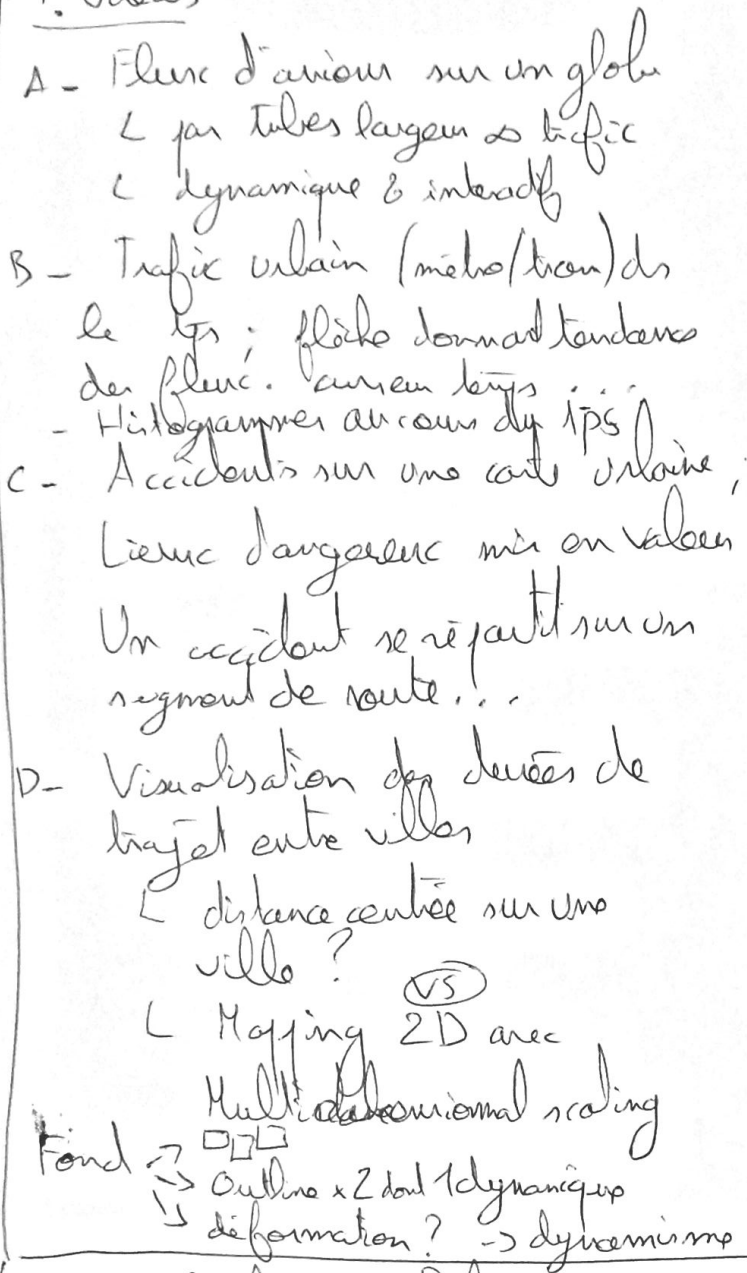 A - Flux d'avions sur un globe
L par tubes largeur ∝ trafic
L dynamique & interactif
B - Trafic urbain (métro/tram) ds
le tps ; flèche donnant tendance
des flux. temps ...
- Histogrammes au cours du tps
C - Accidents sur une carte urbaine ;
Lieux dangereux mis en valeur
Un accident se répartit sur un
segment de route...
D - Visualisation des durées de
trajet entre villes
L distance centrée sur une
ville ?
VS
L Mapping 2D avec
Multidimensionnal scaling
Fond →
→ Outline x 2 dont 1 dynamique
↘ déformation ? → dynamisme